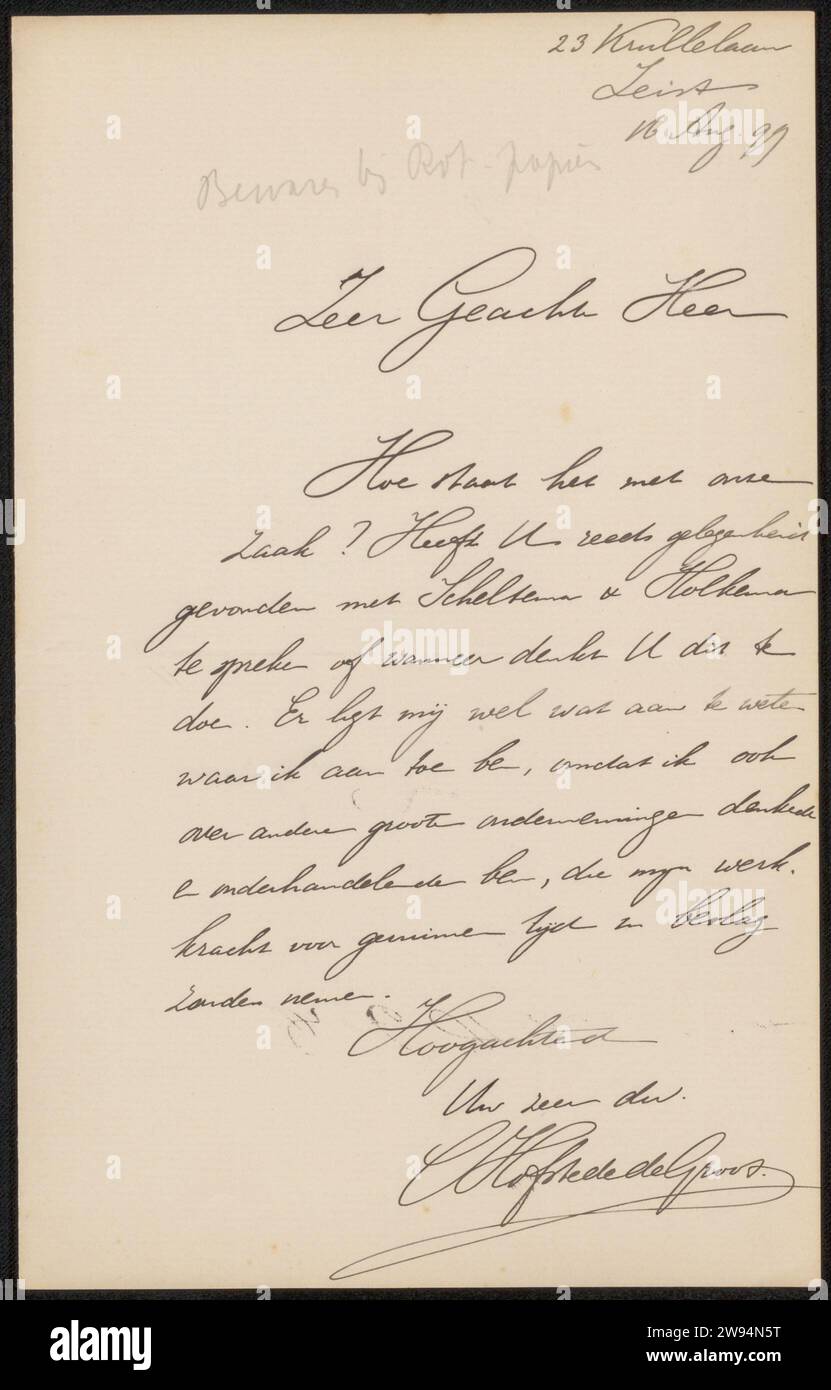 23 Krullelaan
Zeist
16 Aug. 99
Bewaren bij Rot-papier
Zeer Geachte Heer
Hoe staat het met onze
zaak? Heeft U reeds gelegenheid
gevonden met Scheltema & Holkema
te spreken of wanneer denkt U dit te
doen. Er ligt mij wel wat aan te weten
waar ik aan toe ben, omdat ik ook
over andere groote ondernemingen denkende
en onderhandelende ben, die mijn werk-
kracht voor geruimen tijd in beslag
zouden nemen.
Hoogachtend
Uw zeer dw.
C Hofstede de Groot.
alamy
Image ID: 2W94N5T
www.alamy.com